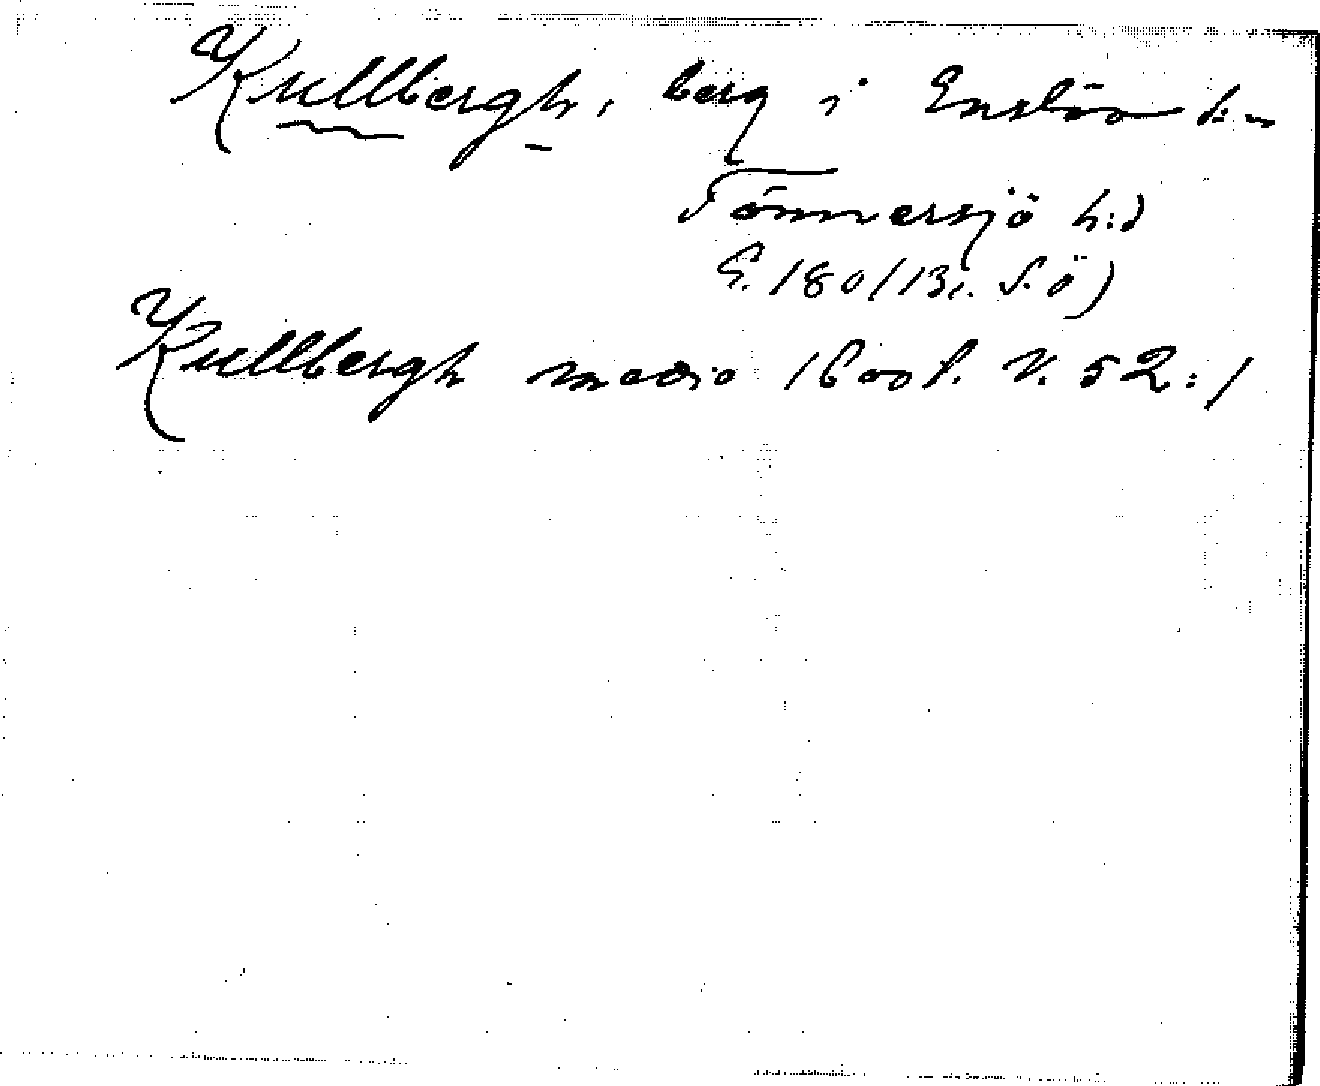 Kullbergh, berg i Enslöv s:n
Tönnersjö h:d
G. 180/13. S. ö)
Kullbergh medio 1600 t. V. 52:1